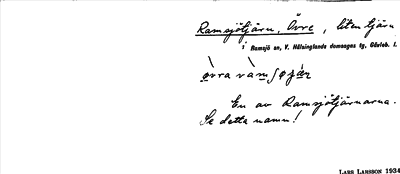 Ramsjötjärn, Övre, liten tjärn
Ramsjö sn, V. Hälsinglands domsagas tg, Gävleb. l.
En av Ramsjötjärnarna.
Se detta namn!
LARS LARSSON 1934